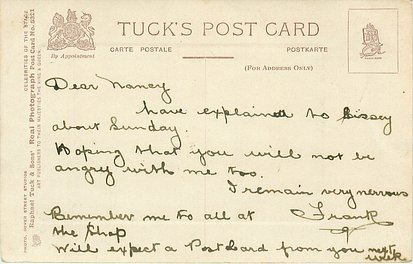 TUCK'S POST CARD
CARTE POSTALE
POSTKARTE
By Appointment
(FOR ADDRESS ONLY)
CELEBRITIES OF THE STAGE
Raphael Tuck & Sons' Real Photograph Post Card No.
ART PUBLISHERS TO THEIR MAJESTIES THE KING & QUEEN.
Dear Nancy
have explained to Cissey
about Sunday.
Hoping that you will not be
angry with me too.
I remain very nervous
Frank
Remember me to all at
the Shop
Will expect a Postcard from you next
week